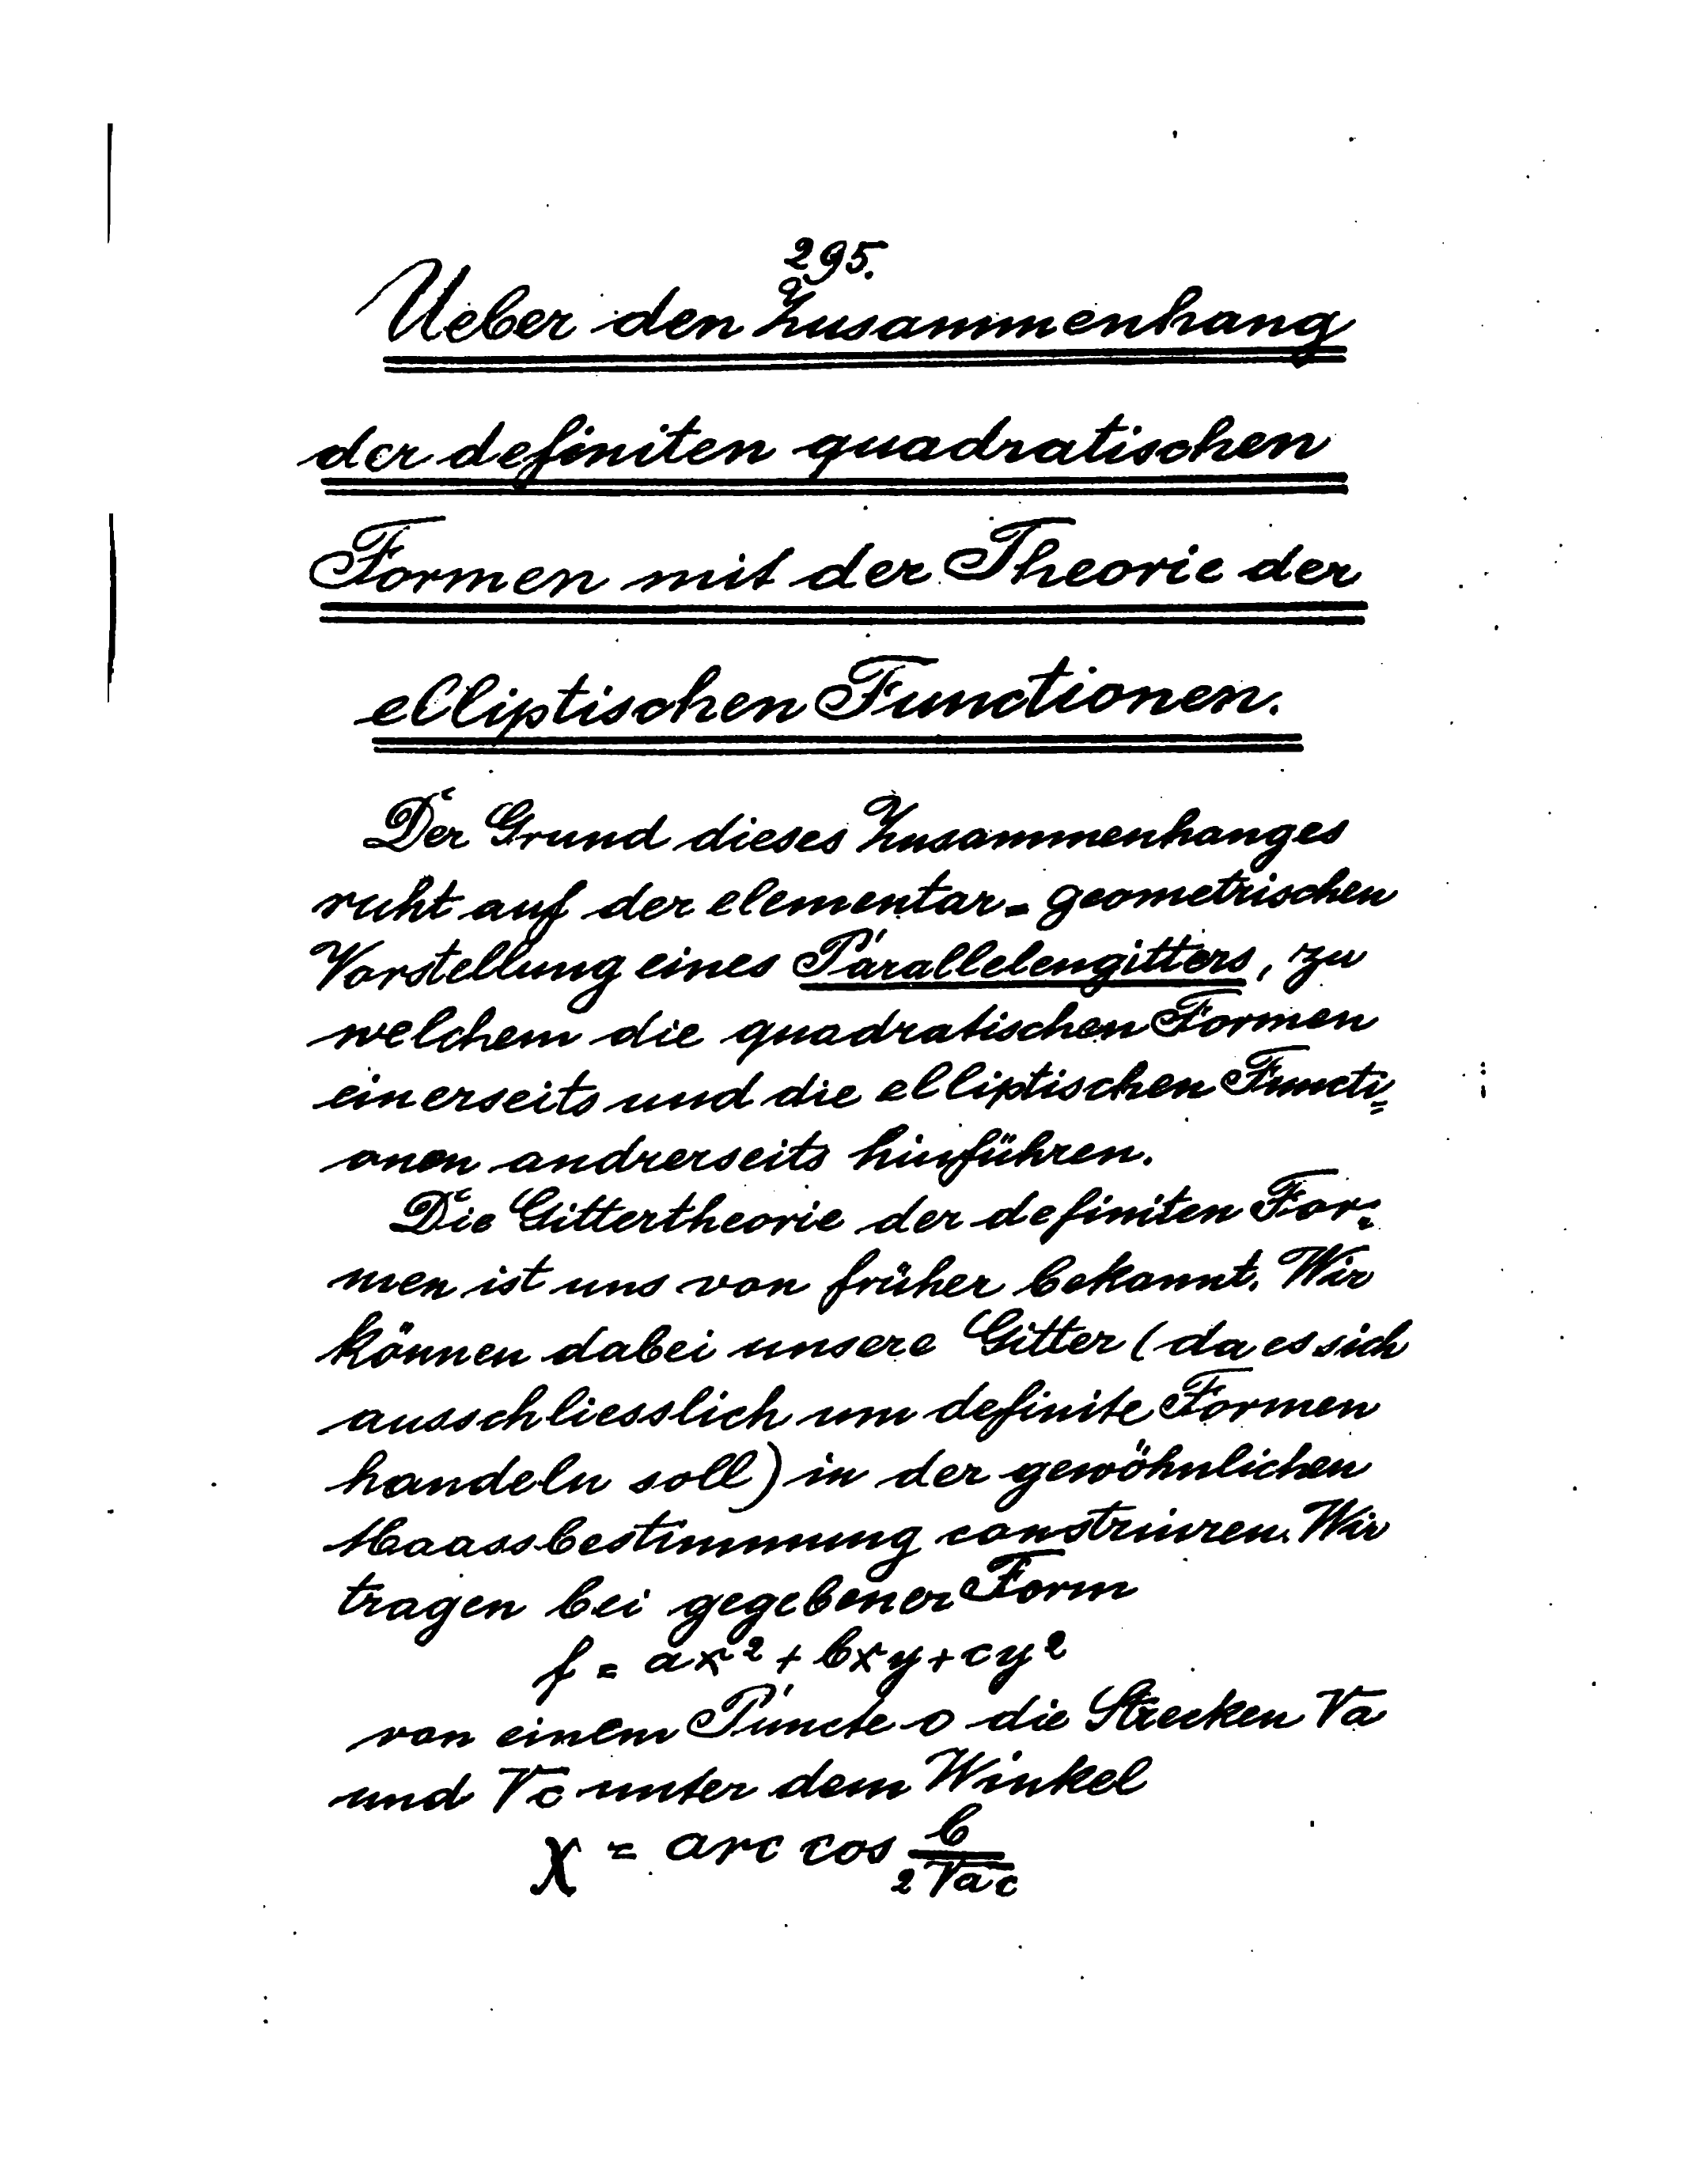 295.
Ueber den Zusammenhang
der definiten quadratischen
Formen mit der Theorie der
elliptischen Functionen.
Der Grund dieses Zusammenhanges
ruht auf der elementar-geometrischen
Vorstellung eines Parallelengitters, zu
welchem die quadratischen Formen
einerseits und die elliptischen Functi=
onen andrerseits hinführen.
Die Gittertheorie der definiten For=
men ist uns von früher bekannt. Wir
können dabei unsere Gitter (da es sich
ausschliesslich um definite Formen
handeln soll) in der gewöhnlichen
Maassbestimmung construiren. Wir
tragen bei gegebener Form
f = ax² + bxy + cy²
von einem Puncte o die Strecken √a
und √c unter dem Winkel
χ = arc cos b / 2√ac